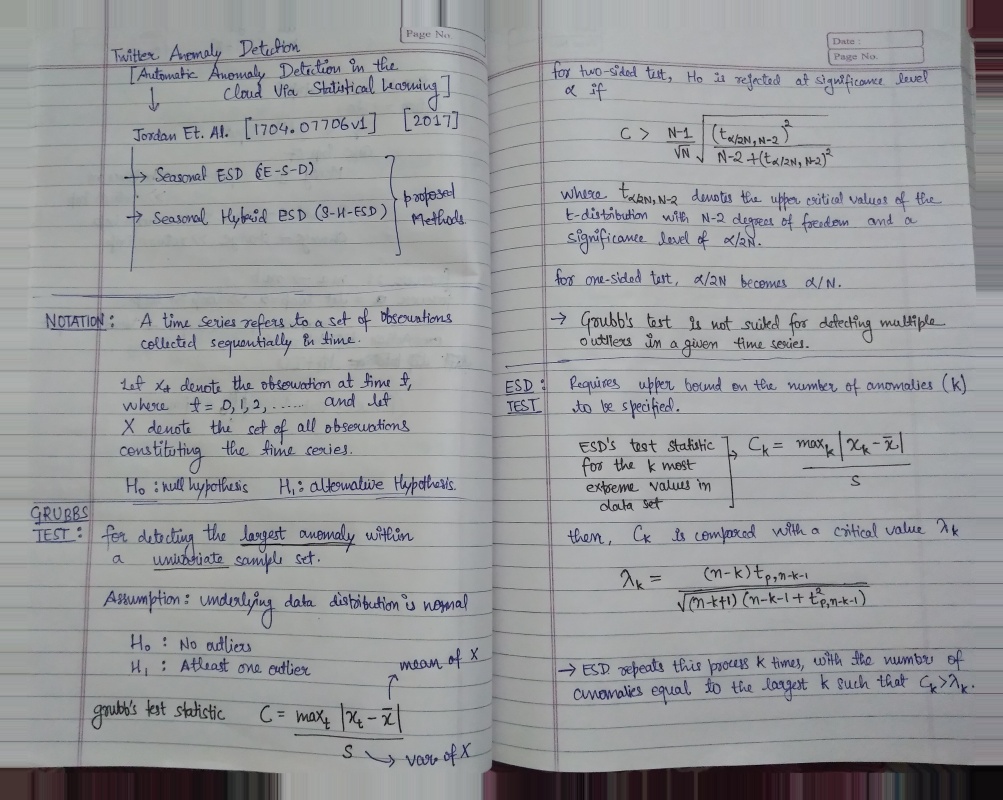 Page No.
Twitter Anomaly Detection
[Automatic Anomaly Detection in the
Cloud Via Statistical Learning]
↓
Jordan Et. Al. [1704.07706v1] [2017]
→ Seasonal ESD (E-S-D)
→ Seasonal Hybrid ESD (S-H-ESD)
proposed
Methods
NOTATION: A time series refers to a set of observations
collected sequentially in time.
Let x_t denote the observation at time t,
where t = 0, 1, 2, ...... and let
X denote the set of all observations
constituting the time series.
H₀ : null hypothesis H₁ : alternative Hypothesis.
GRUBBS
TEST: for detecting the largest anomaly within
a univariate sample set.
Assumption: underlying data distribution is normal
H₀ : No outliers
H₁ : Atleast one outlier
mean of X
grubb's test statistic C = max_t |x_t - x̄| / S
→ var of X
Date :
Page No.
for two-sided test, H₀ is rejected at significance level
α if
C > (N-1)/√N √((t_α/2N, N-2)² / (N-2 + (t_α/2N, N-2)²))
where t_α/2N, N-2 denotes the upper critical values of the
t-distribution with N-2 degrees of freedom and a
significance level of α/2N.
for one-sided test, α/2N becomes α/N.
→ Grubb's test is not suited for detecting multiple
outliers in a given time series.
ESD : Requires upper bound on the number of anomalies (k)
TEST to be specified.
ESD's test statistic
for the k most
extreme values in
data set
C_k = max_k |x_k - x̄| / S
then, C_k is compared with a critical value λ_k
λ_k = (n-k) t_p,n-k-1 / √((n-k+1) (n-k-1 + t²_p,n-k-1))
→ ESD repeats this process k times, with the number of
anomalies equal to the largest k such that C_k > λ_k.